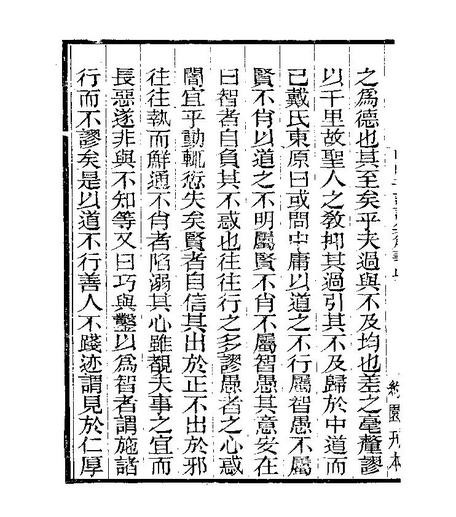 之爲德也其至矣乎夫過與不及均也差之毫釐謬
以千里故聖人之教抑其過引其不及歸於中道而
已戴氏東原曰或問中庸以道之不行屬智愚不屬
賢不肖以道之不明屬賢不肖不屬智愚其意安在
曰智者自負其不惑也往往行之多謬愚者之心惑
闇宜乎動輒愆失矣賢者自信其出於正不出於邪
往往執而鮮通不肖者陷溺其心雖覩夫事之宜而
長惡遂非與不知等又曰巧與鑿以爲智者謂施諸
行而不謬矣是以道不行善人不踐迹謂見於仁厚